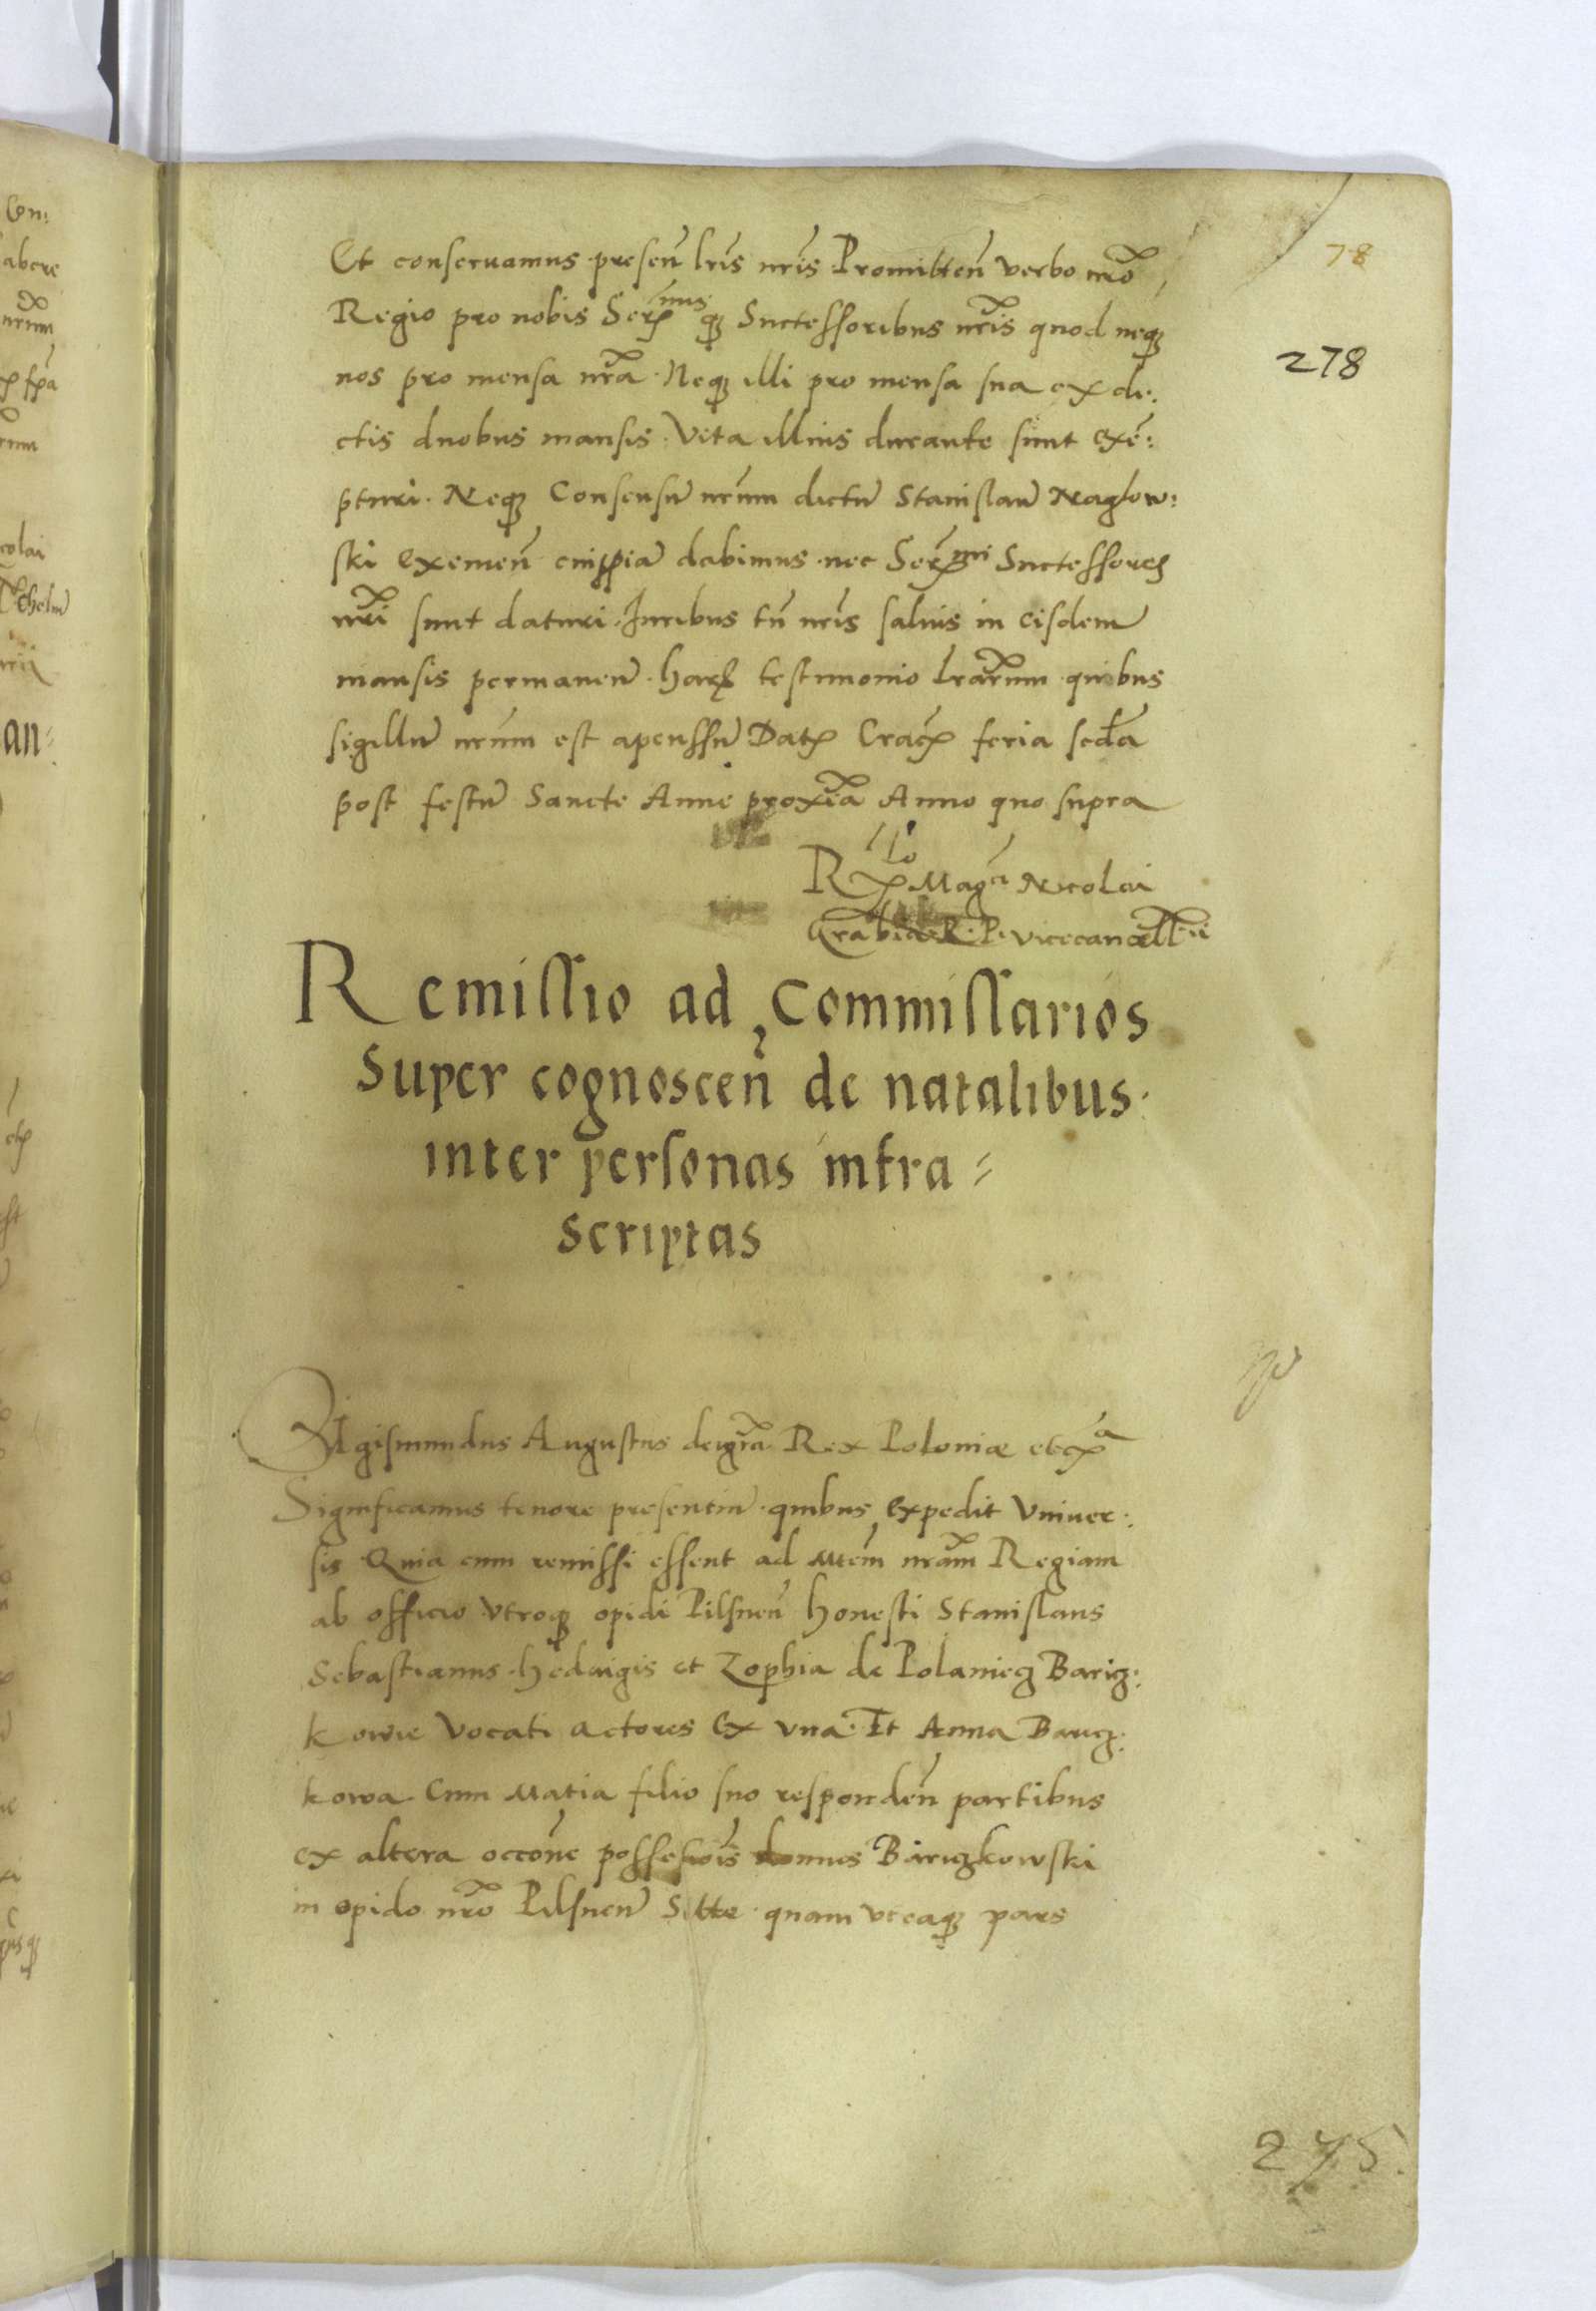 78
278
Et conseruamus presen̄ lr̃is nr̃is Promitten̄ verbo nr̃o
Regio pro nobis Ser: mus q3 Successoribus nr̃is quod neq3
nos pro mensa nr̃a Neq3 illi pro mensa sua ex di:
ctis duobus mansis Vita illius durante sunt exē:
pturi. Neq3 Consensū nr̃um dictū Stanislaū Naglow:
ski eximen̄ cuippiā dabimus nec Ser:mi Successores
nr̃i sunt daturi. Juribus tn̄ nr̃is saluis in eisdem
mansis permanen̄. harꝝ testimonio lr̃arum quibus
sigillū nr̃um est apenssū Datꝫ Cracꝫ feria secd̃a
post festū Sancte Anne proxĩa Anno quo supra
R lo Mag:ci Nicolai
Grabia R. P. vicecancell:ii
Remissio ad Commissarios
super cognoscen̄ de natalibus
inter personas infra=
scriptas
Sigismundus Augustus dei gr̃a Rex Poloniæ etcꝫa
Significamus tenore presentiū quibus expedit Vniuer:
sis Quia cum remissi essent ad Mtem nr̃am Regiam
ab officio vtroq3 opidi Pilsnen̄ honesti Stanislaus
Sebastianus hedwigis et Zophia de Polaniecz Baricz:
kowie vocati actores ex vna Et Anna Baricz:
kowa Cum Matia filio suo responden̄ partibus
ex altera occõne possessiõis domus Bariczkowski
in opido nr̃o Pilsnen̄ Sitte quam vtraq3 pars
275.